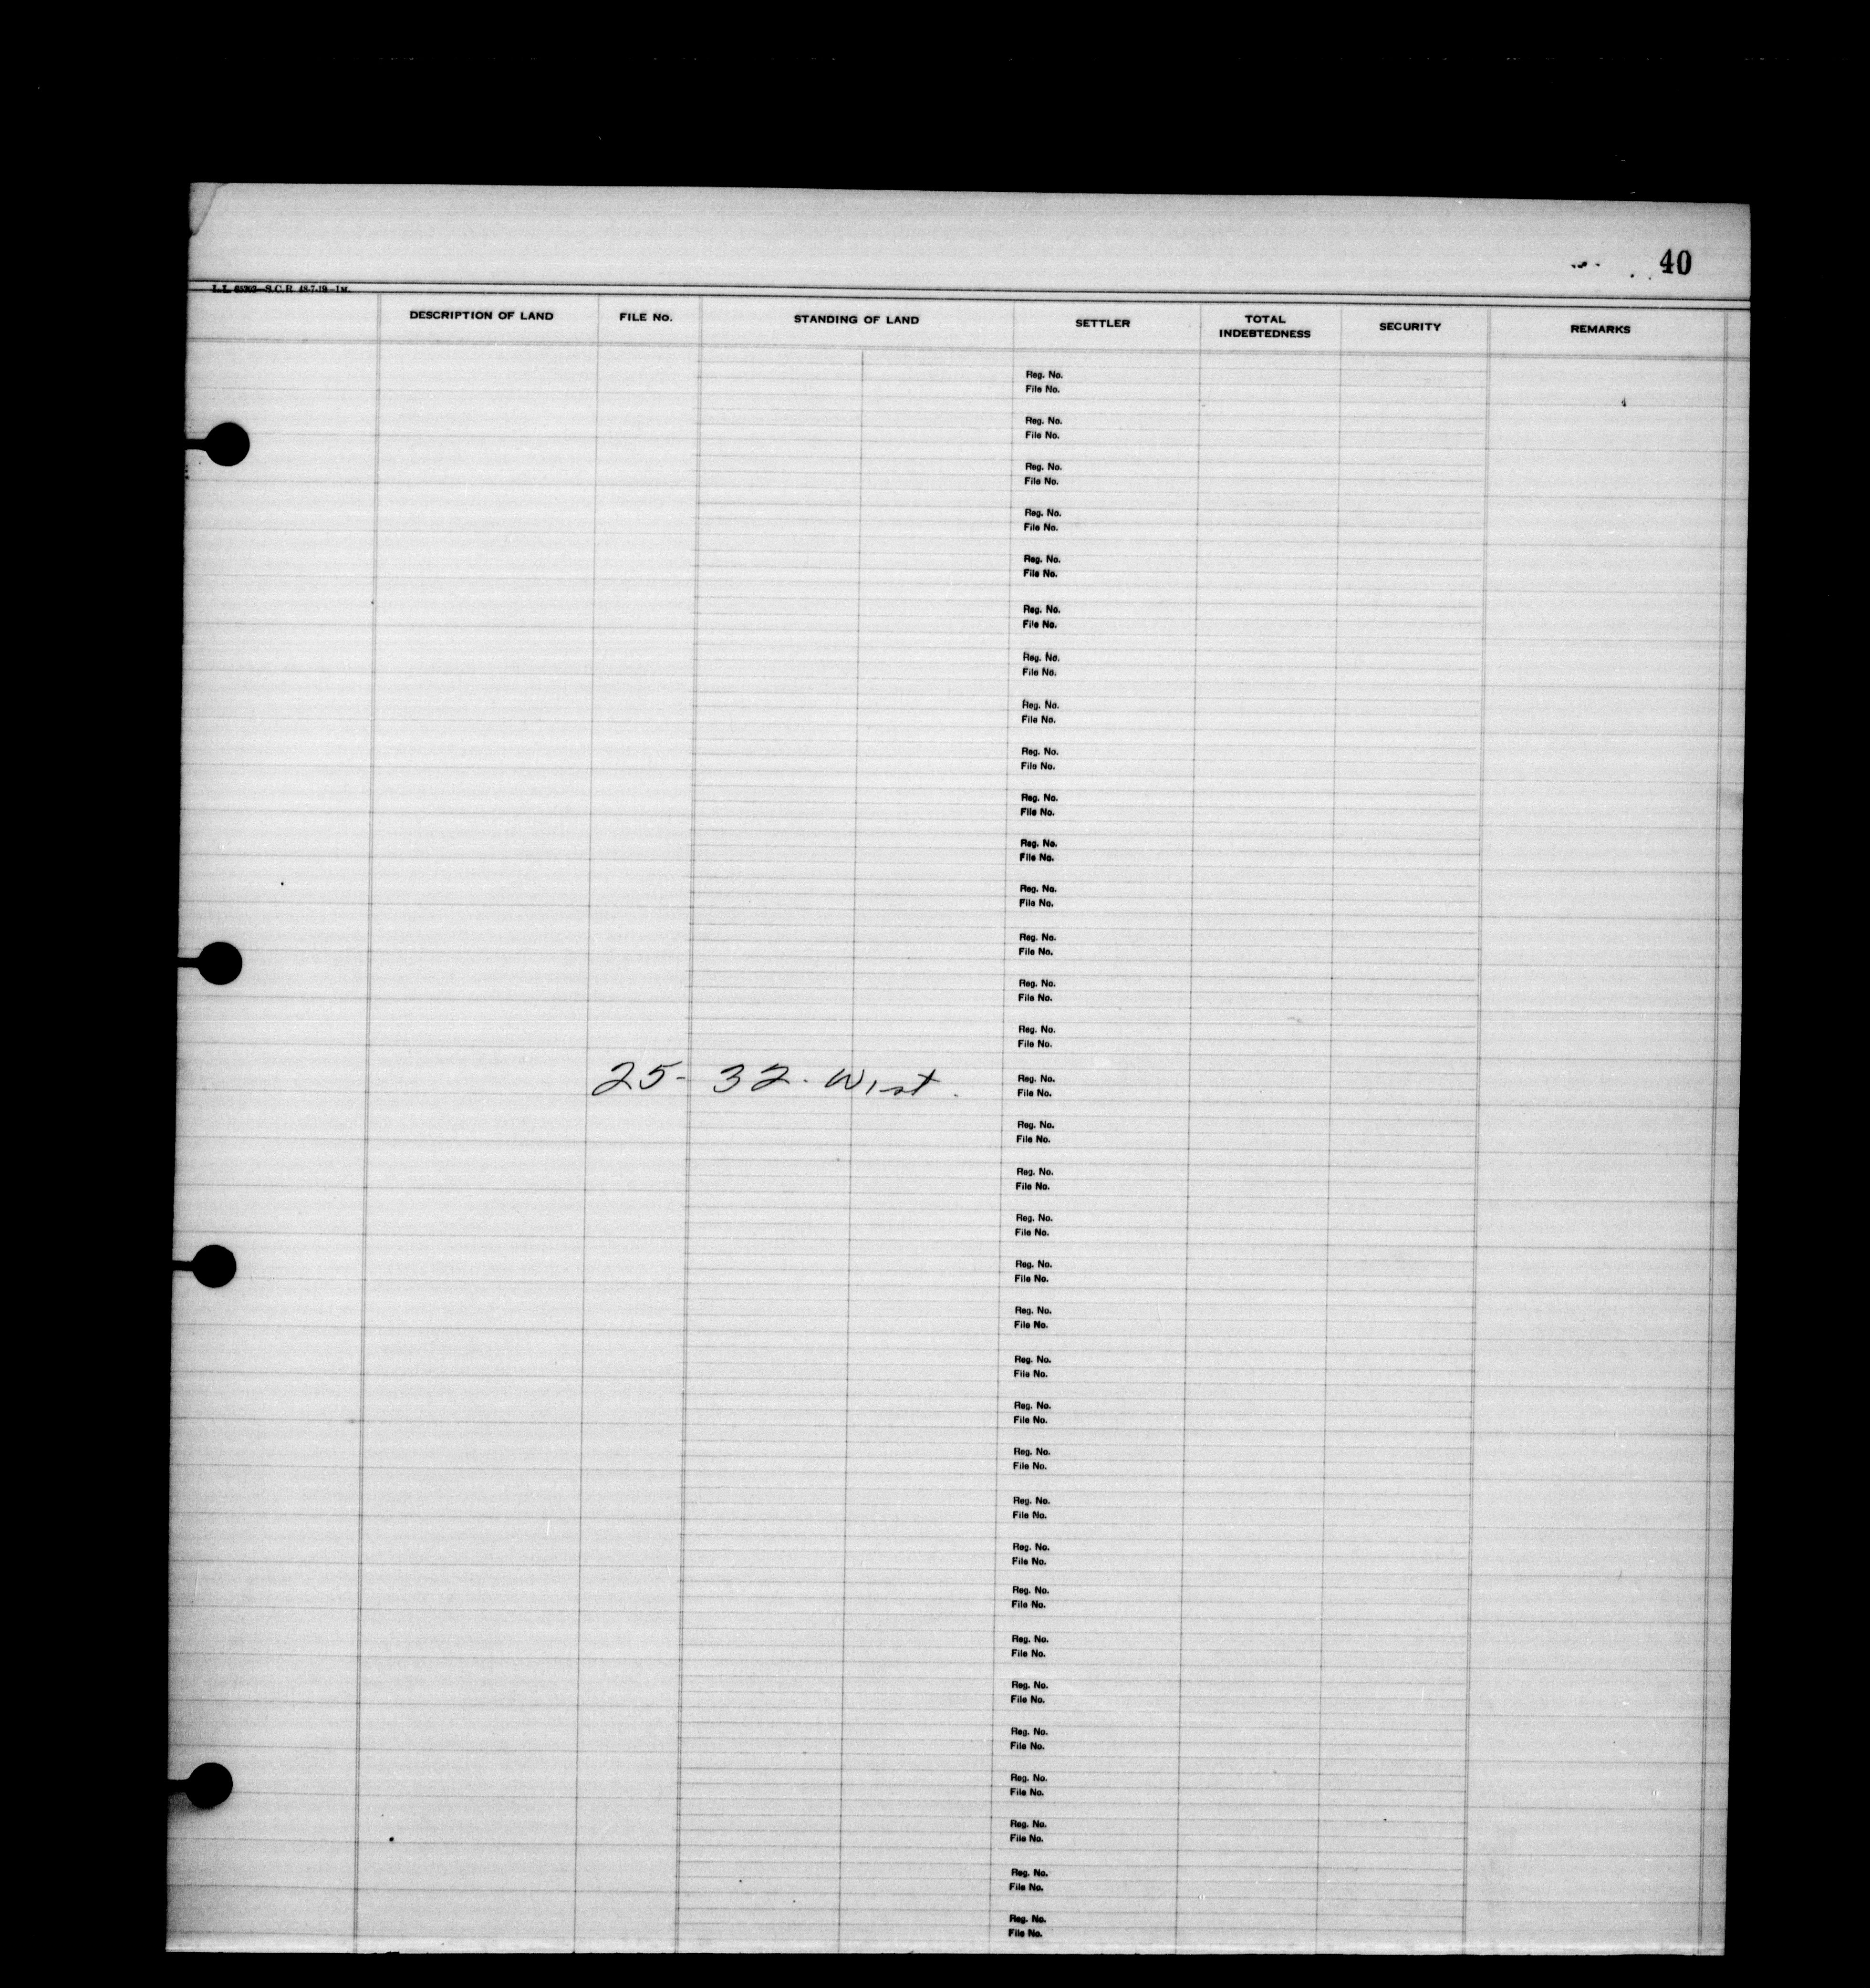 40
DESCRIPTION OF LAND FILE NO. STANDING OF LAND SETTLER TOTAL INDEBTEDNESS SECURITY REMARKS
Reg. No.
File No.
Reg. No.
File No.
Reg. No.
File No.
Reg. No.
File No.
Reg. No.
File No.
Reg. No.
File No.
Reg. No.
File No.
Reg. No.
File No.
Reg. No.
File No.
Reg. No.
File No.
Reg. No.
File No.
Reg. No.
File No.
Reg. No.
File No.
Reg. No.
File No.
Reg. No.
File No.
25- 32. West.
Reg. No.
File No.
Reg. No.
File No.
Reg. No.
File No.
Reg. No.
File No.
Reg. No.
File No.
Reg. No.
File No.
Reg. No.
File No.
Reg. No.
File No.
Reg. No.
File No.
Reg. No.
File No.
Reg. No.
File No.
Reg. No.
File No.
Reg. No.
File No.
Reg. No.
File No.
Reg. No.
File No.
Reg. No.
File No.
Reg. No.
File No.
Reg. No.
File No.
Reg. No.
File No.